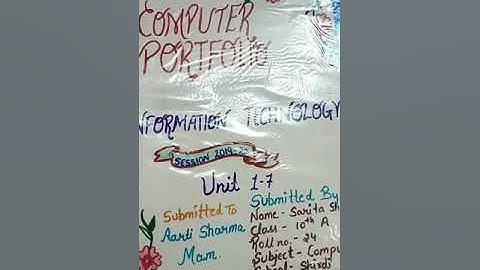 COMPUTER
PORTFOLIO
INFORMATION TECHNOLOGY
SESSION 2019-20
Unit 1-7
Submitted To
Aarti Sharma
Mam.
Submitted By
Name - Sarita Sh
Class - 10th A
Roll no. - 24
Subject - Compu
- Shirdi